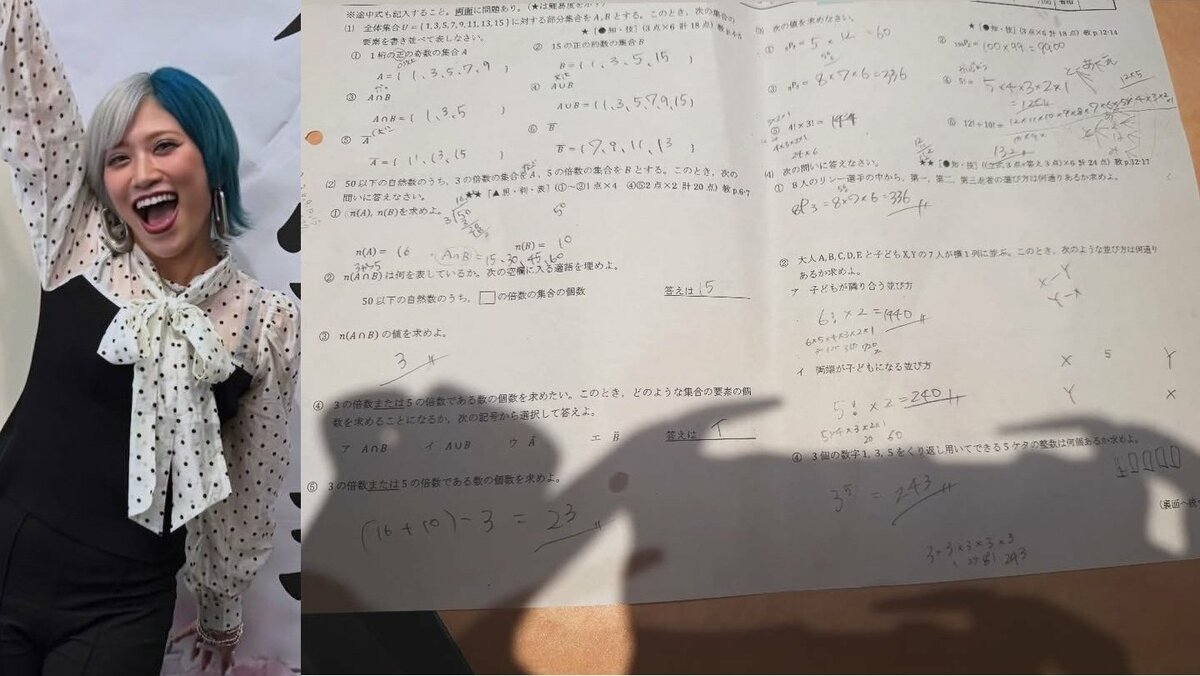 ※途中式も記入すること。画面に問題あり。(★は難易度を示す)
(1) 全体集合U={1,3,5,7,9,11,13,15}に対する部分集合をA,Bとする。このとき、次の集合の
要素を書き並べて表しなさい。
★ [●知・技] (3点×6 計18点) 教p.4-5
① 1桁の正の奇数の集合A
A={ 1, 3, 5, 7, 9 }
② 15の正の約数の集合B
B={ 1, 3, 5, 15 }
③ A∩B
A∩B={ 1, 3, 5 }
④ A∪B
A∪B={ 1, 3, 5, 7, 9, 15 }
⑤ A
A={ 11, 13, 15 }
⑥ B
B={ 7, 9, 11, 13 }
(2) 50以下の自然数のうち、3の倍数の集合をA、5の倍数の集合をBとする。このとき、次の
問いに答えなさい。
★★ [▲思・判・表] (①~③1点×4 ④⑤2点×2 計20点) 教p.6-7
① n(A), n(B)を求めよ。
n(A)= 16
n(B)= 10
A∩B = 15, 30, 45, 60
② n(A∩B)は何を表しているか。次の空欄に入る適語を埋めよ。
50以下の自然数のうち、□の倍数の集合の個数
答えは 15
③ n(A∩B)の値を求めよ。
3
④ 3の倍数または5の倍数である数の個数を求めたい。このとき、どのような集合の要素の個
数を求めることになるか、次の記号から選択して答えよ。
ア A∩B イ A∪B ウ Ā エ B̄
答えは イ
⑤ 3の倍数または5の倍数である数の個数を求めよ。
(16+10)-3=23
(3) 次の値を求めなさい。
★ [●知・技] (3点×6 計18点) 教p.12-14
① 5×12=60
② 100×99=9900
③ 8×7×6=336
④ 5!=
5×4×3×2×1
⑤ 4!×3!= 144
4×3×2×1
24×6
⑥ 12!÷10!=
12×11×10×9×8×7×6×5×4×3×2×1
132
(4) 次の問いに答えなさい。
★★ [●知・技] (式3点+答え3点)×6 計24点) 教p.12-17
① 8人のリレー選手の中から、第一、第二、第三走者の選び方は何通りあるか求めよ。
8P3=8×7×6=336
② 大人A,B,C,D,Eと子どもX,Yの7人が横1列に並ぶ。このとき、次のような並び方は何通り
あるか求めよ。
ア 子どもが隣り合う並び方
X-Y
Y-X
6!×2=1440
6×5×4×3×2×1
イ 両端が子どもになる並び方
X 5 Y
Y X
5!×2=240
5×4×3×2×1
20 60
④ 3個の数字1,3,5をくり返し用いてできる5ケタの整数は何個あるか求めよ。
3⁵=243
3×3×3×3×3
243